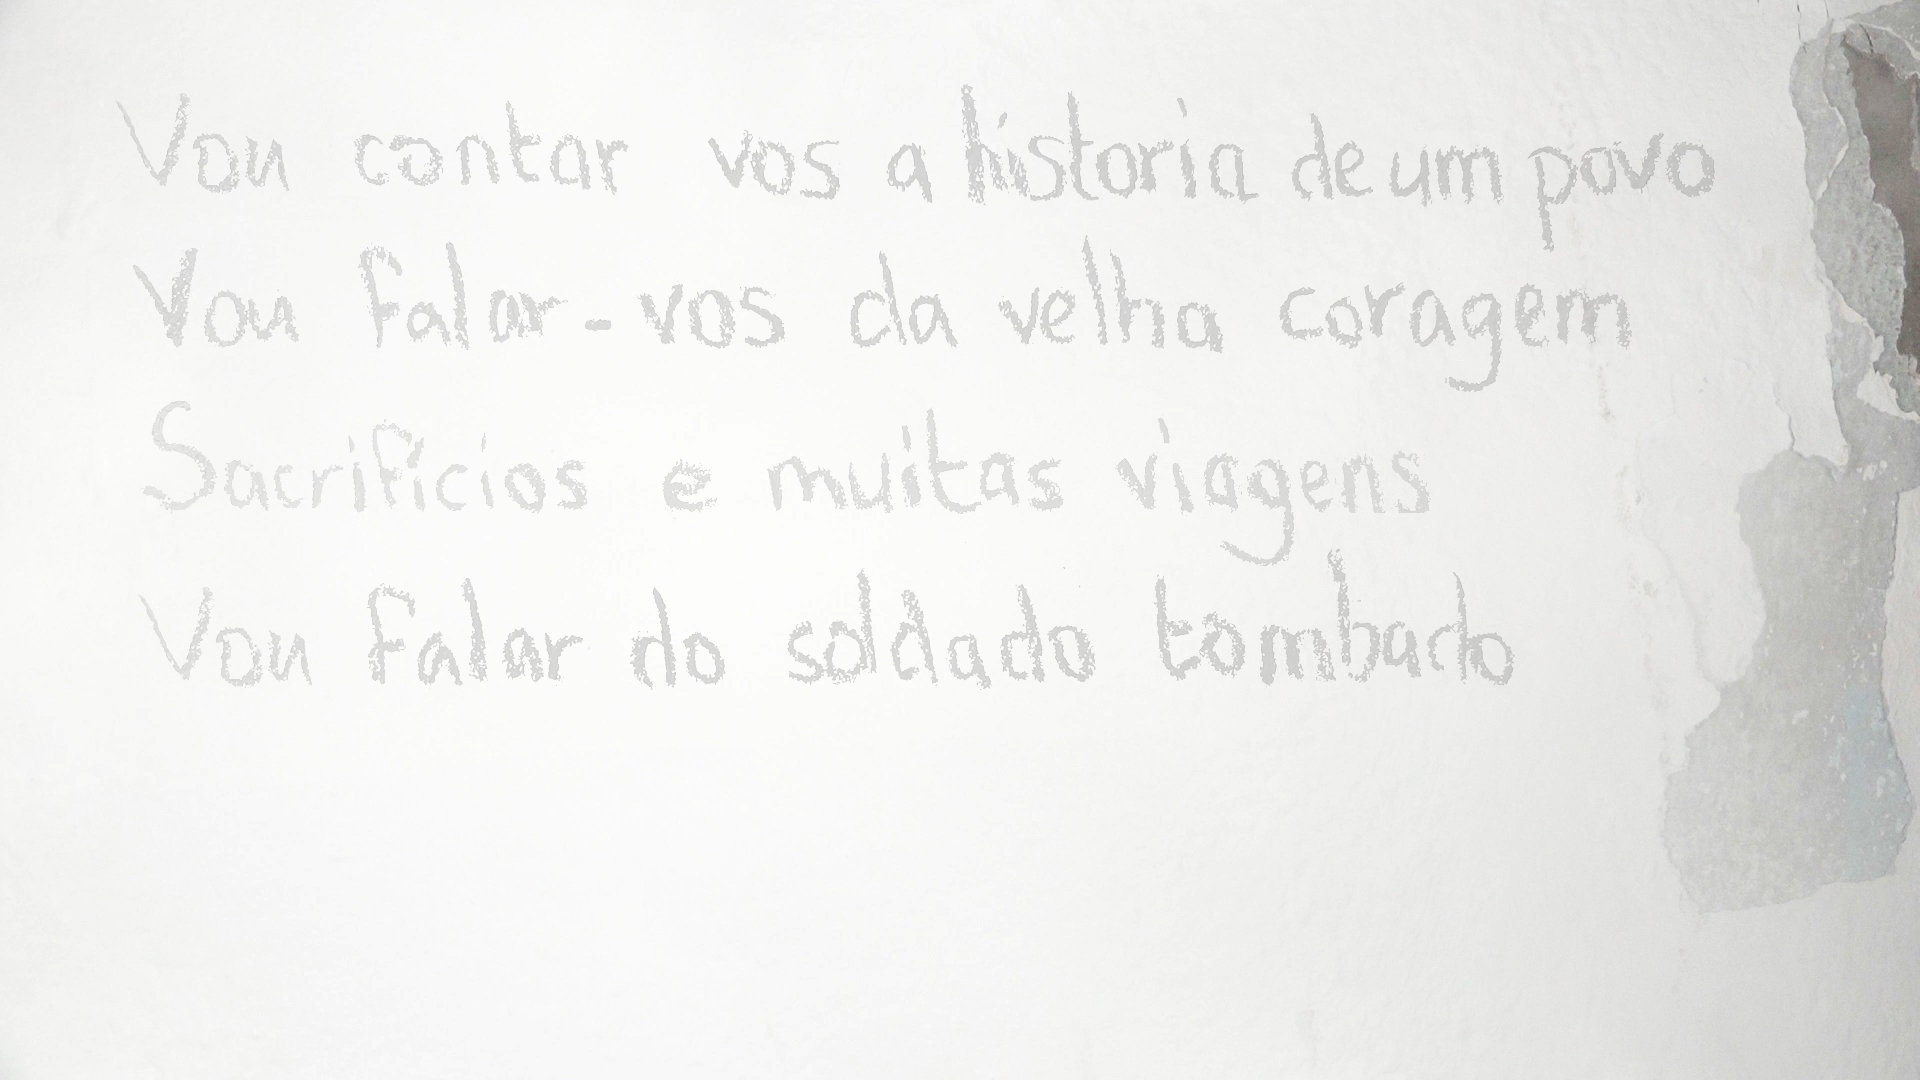 Vou contar vos a história de um povo
Vou falar-vos da velha coragem
Sacrifícios e muitas viagens
Vou falar do soldado tombado